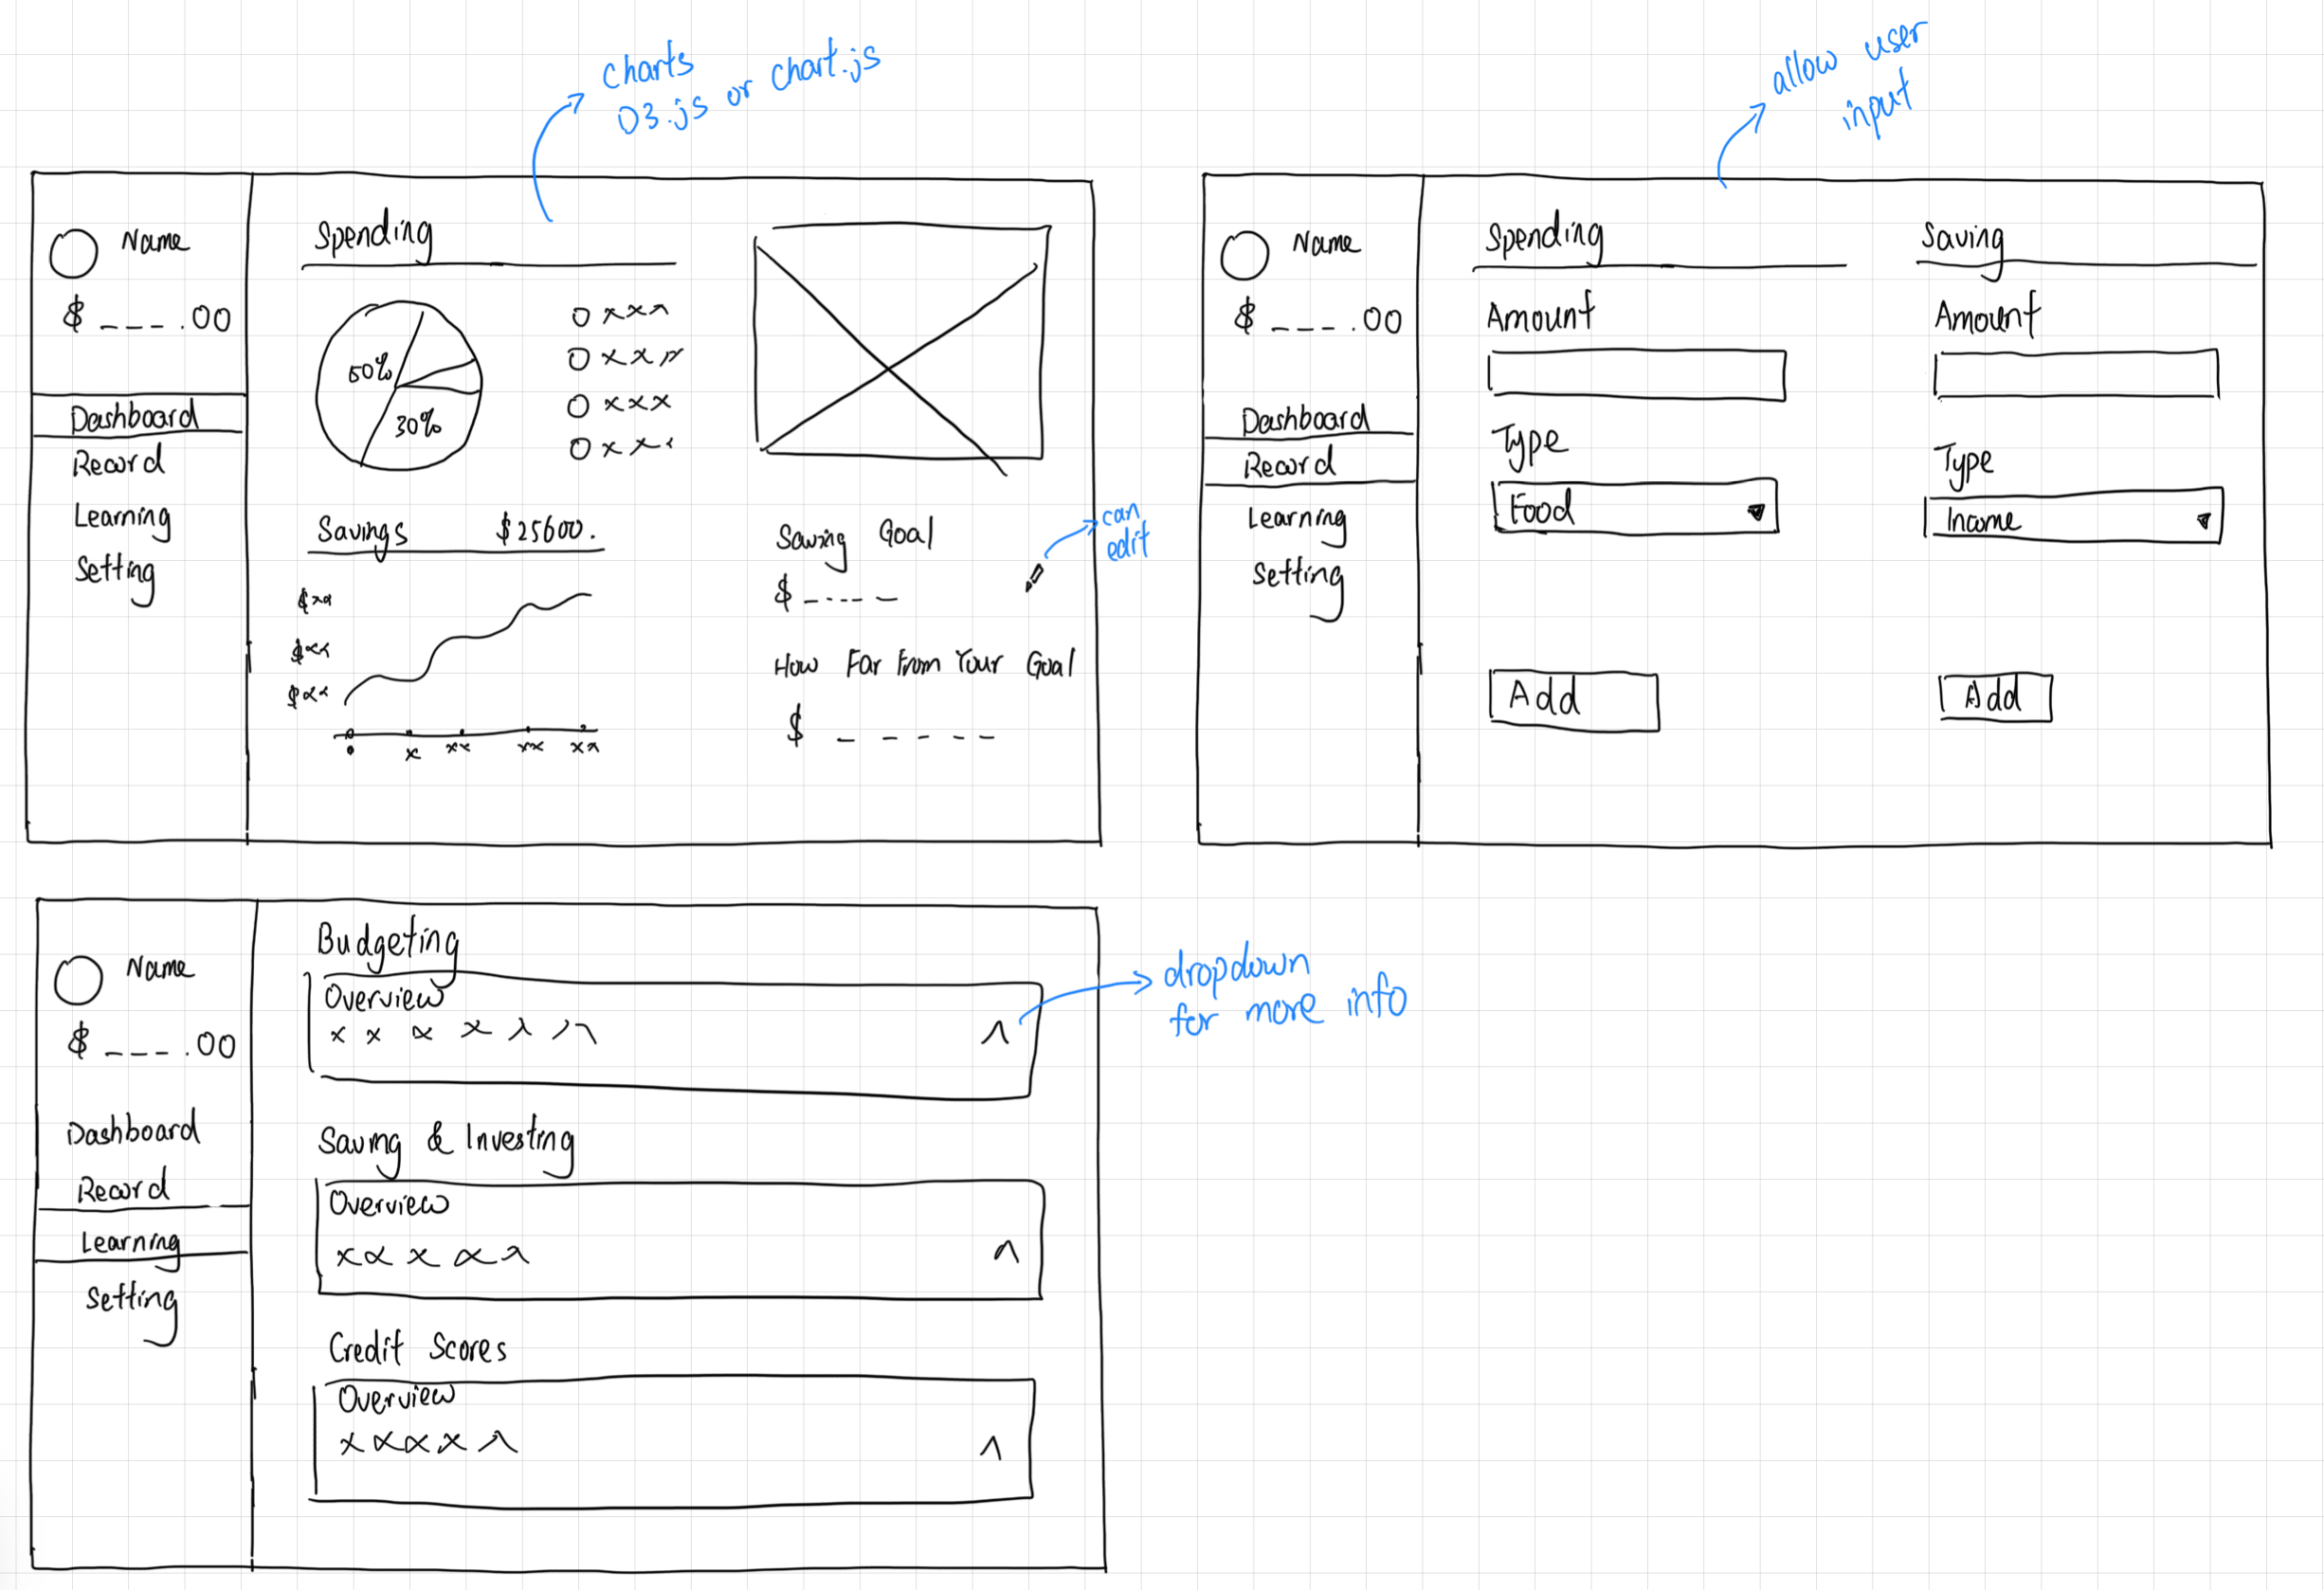 charts
D3.js or chart.js
allow user
input
Name
$ _ _ _ .00
Dashboard
Record
Learning
Setting
Spending
50%
30%
O x x x
O x x x
O x x x
O x x x
Savings $25600.
$xx
$xx
$xx
0 x xx xx xx
Saving Goal
$ _ _ _ _ _
can
edit
How Far From Your Goal
$ _ _ _ _ _
Name
$ _ _ _ .00
Dashboard
Record
Learning
Setting
Spending
Amount
Type
Food
Add
Saving
Amount
Type
Income
Add
Name
$ _ _ _ .00
Dashboard
Record
Learning
Setting
Budgeting
Overview
x x x x x x
dropdown
for more info
Saving & Investing
Overview
x x x x x
Credit Scores
Overview
x x x x x